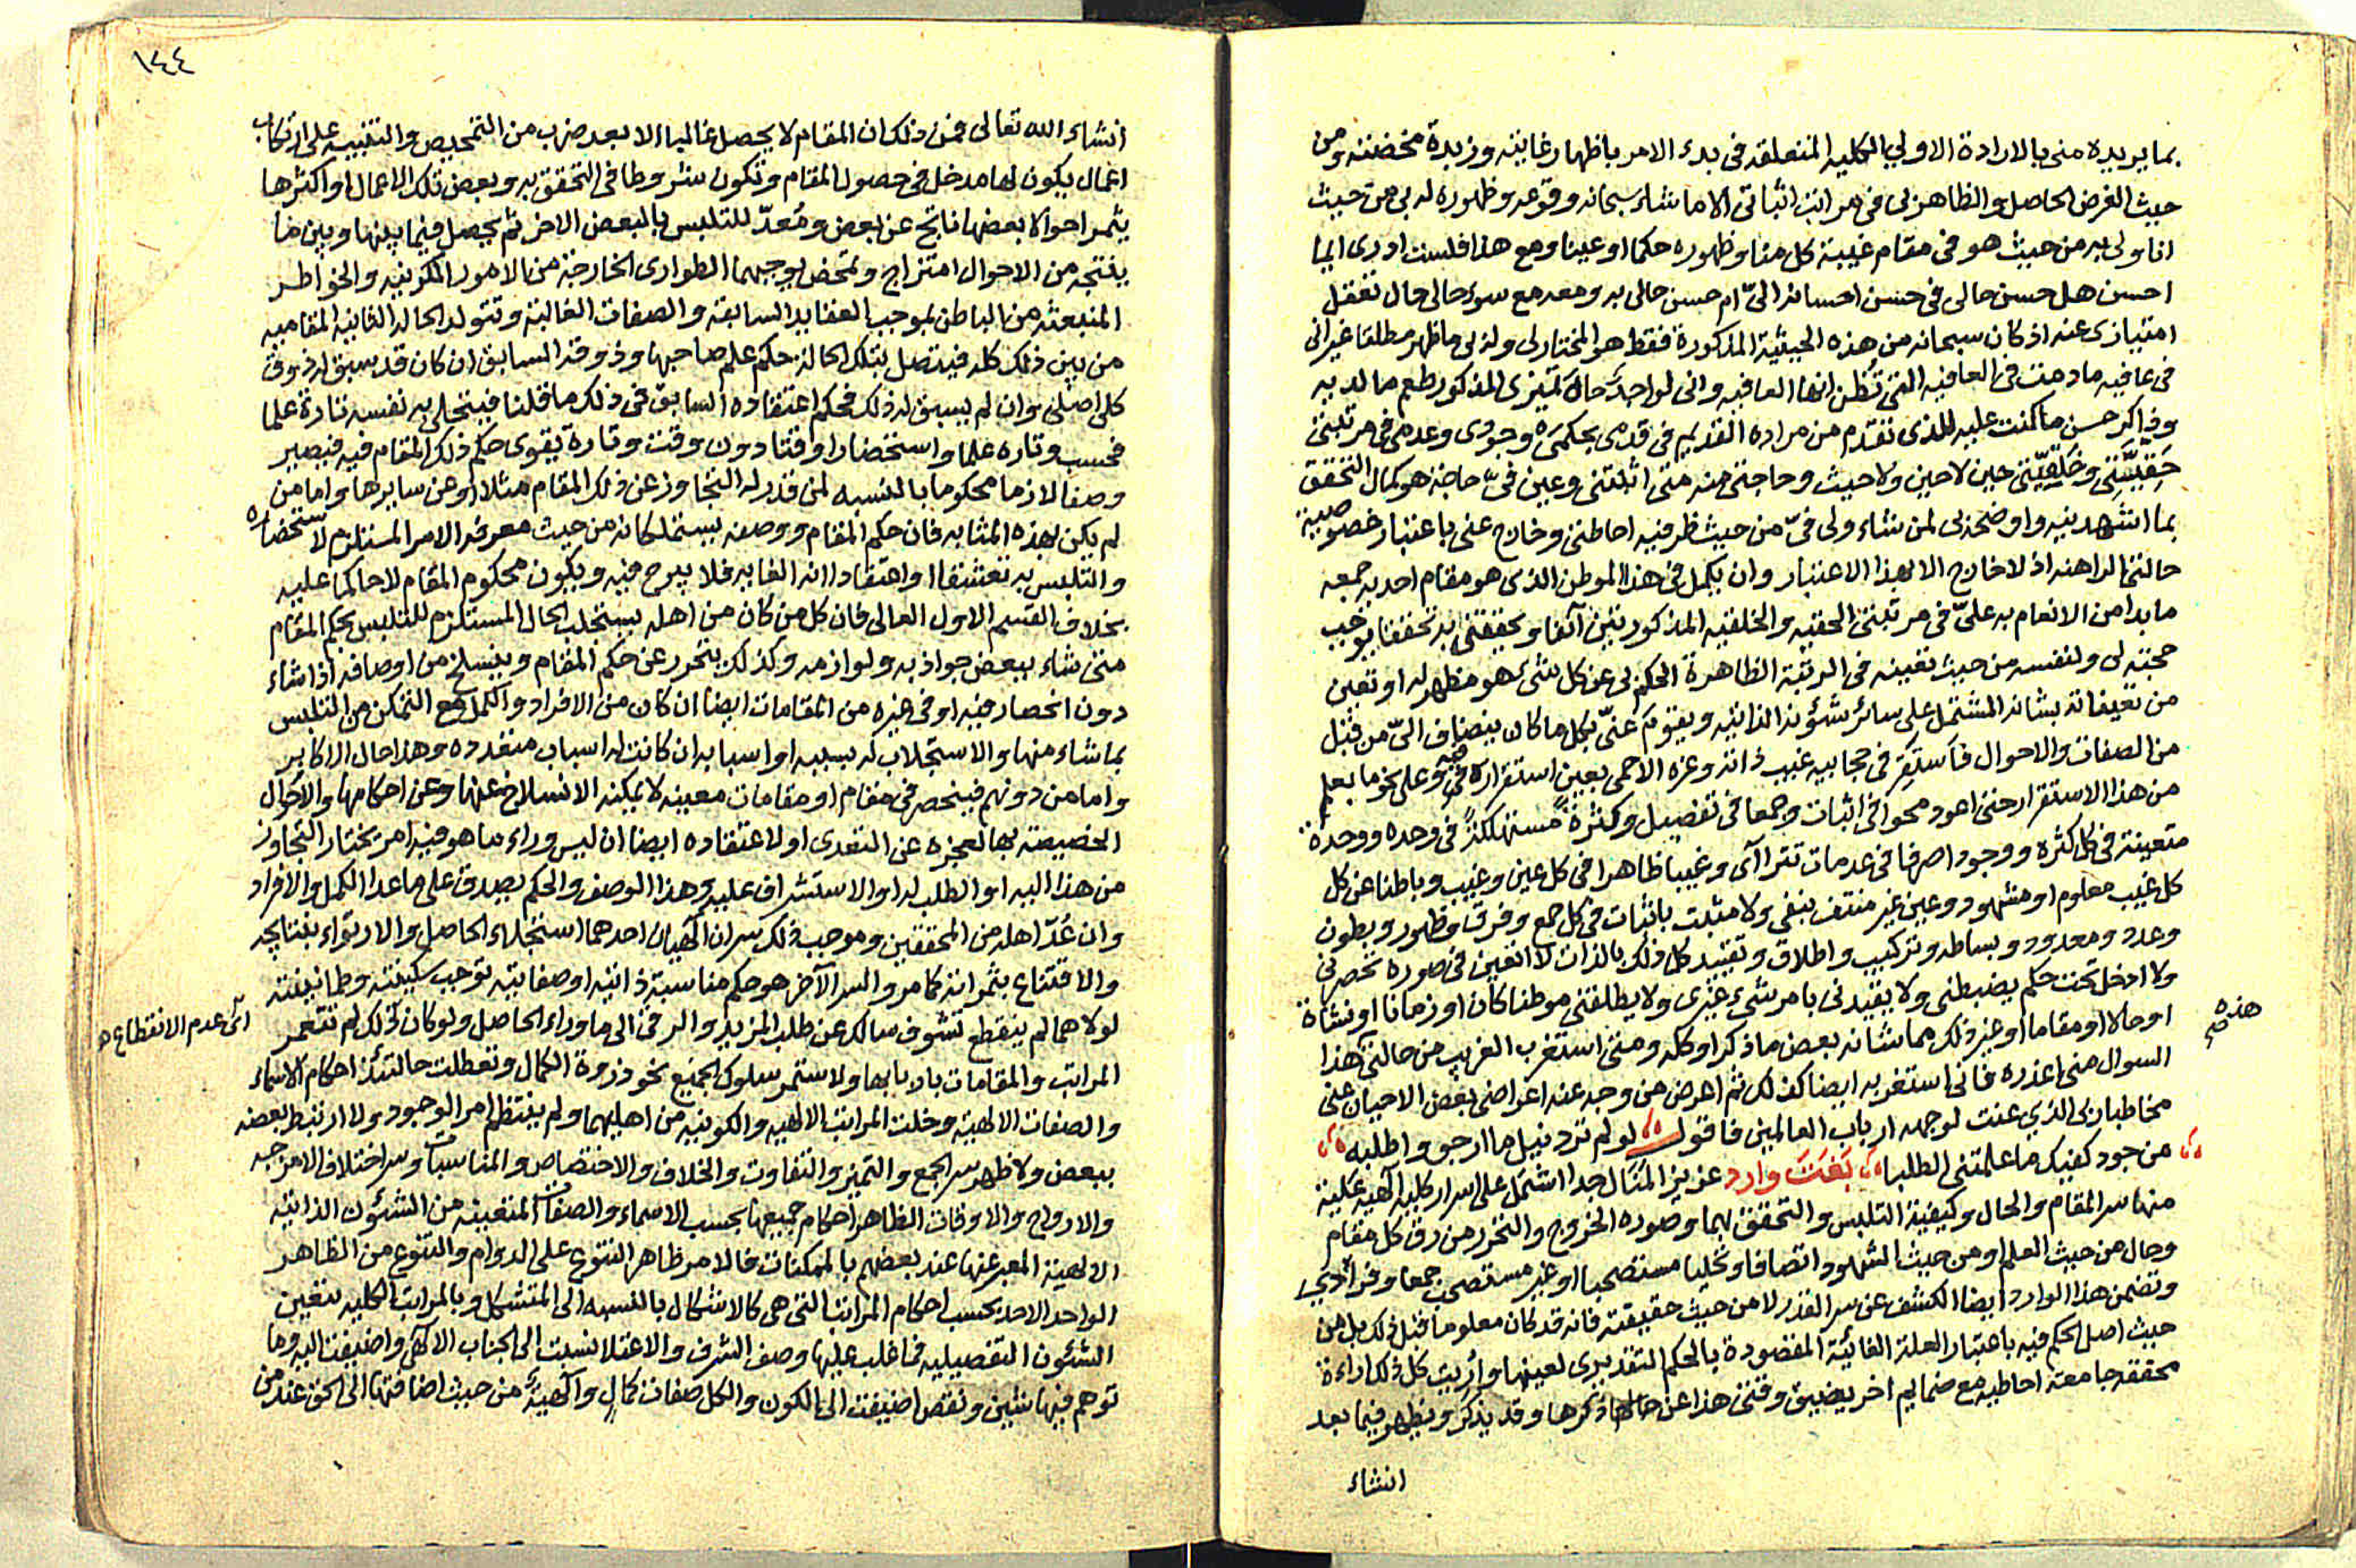 بما يريده منى بالارادة الاولى الكليه المتعلقه فى بدء الامر باظهار غايته وزبدة مخضته ومن
حيث الغرض الحاصل والظاهر لى فى مراتب اثباتى الا ما شاء سبحانه وقوعه وظهوره له بى من حيث
انا ولى به من حيث هو فى مقام غيبته كل منا وظهوره حكما او عينا ومع هذا فلست ادرى ايما
احسن هل حسن حالى فى حسن احسانه الىّ ام حسن حالى به ومعه مع سوء حالى حال تعقل
امتيازى عنه اذ كان سبحانه من هذه الحيثية المذكورة فقط هو المختار لى ولو بى ما ظهر مطلقا غير انى
فى عافيه ما دمت فى العافيه التى تظن انها العافيه وانى لواجد حال تميزى المذكور طعم ما لديه
وذاكر حسن ما كنت عليه للذى تقدم من مراده القديم فى قدمى بحكمى وجودى وعدمى فى مرتبتى
حَقِيَّتِى وخَلقِيّتى حين لاحين ولا حيث وحاجتى منه متى اثبتنى وعين فىّ حاجة هو كمال التحقق
بما اشهدنيه واوضحه لى لمن شاء ولى فىّ من حيث ظرفيه احاطتى وخارج عنى باعتبار خصوصية
حالتى الراهنه اذ لا خارج الا بهذا الاعتبار وان يكمل فى هذا الموطن الذى هو مقام احديه جمعه
ما بدا من الانعام به علىّ فى مرتبتى الحقيه والخلقيه المذكورتين آنفا وتحققنى به تحققا يوجب
حجته لى ولنفسه من حيث تعينه فى الرتبة الظاهرة الحكم بى عن كل شئ هو مظهر له او تعين
من تعيناته بشانه المشتمل على سائر شئونه الذاتيه ويقوم عنّى بكل ما كان ينضاف الىّ من قبل
من الصفات والاحوال فاستقر فى حجابيه غيب ذاته وعزه الاحمى بعين استقراره فىّ وعلى نحو ما يعلم
من هذا الاستقرار حتى اعود محوا فى اثبات وجمعا فى تفصيل وكثرةً مستهلكةً فى وحده ووحدة
متعينة فى كل كثره ووجودا صرفا فى عدمات تتراآى وغيبا ظاهرا فى كل عين وغيب وباطنا عن كل
كل غيب معلوم او مشهود وعين غير منتف بنفى ولا مثبت باثبات فى كل جمع وفرق وظهور وبطون
وعدد ومعدود وبساطه وتركيب واطلاق وتقييد كل ذلك بالذات لا اتعين فى صوره تحصرنى
ولا ادخل تحت حكم يضبطنى ولا يقيدنى بامر شئ غيرى ولا يطلقنى موطنا كان او زمانا او نشاة
او حالا او مقاما او غير ذلك مما شانه بعض ما ذكر او كله ومتى استغرب الغريب من حالتى هذا
هذه
السوال منى اعذره فانى استغربه ايضا كذلك ثم اعرض من وجه عنه اعراضى بعض الاحيان عنى
مخاطبا ربى الذى عنت لوجهه ارباب العالمين فاقول لو لم ترد نيل ما ارجو واطلبه
من جود كفيك ما علمتنى الطلبا بَغتَت وارد عزيز المنال جدا اشتمل على اسرار كليه آلهيه عليّة
منها سر المقام والحال وكيفية التلبس والتحقق بهما وصوره الخروج والتحرر من رق كل مقام
وحال من حيث العلم او من حيث الشهود اتصافا وتحليا مستصحبا او غير مستصحب جمعا وفرادى
وتضمن هذا الوارد ايضا الكشف عن سر القدر لا من حيث حقيقته فانه قد كان معلوما قبل ذلك بل من
حيث اصل الحكم فيه باعتبار العلة الغائية المقصودة بالحكم التقديرى لعينها واُريت كل ذلك اراءة
محققه جامعة احاطيه مع ضمايم اخر يضيق وقتى هذا عن حالها ذكرها وقد يذكر ويظهر فيما بعد
انشاء
١٤٤
انشاء الله تعالى فمن ذلك ان المقام لا يحصل غالبا الا بعد ضرب من التمحيص والتنبيه على ارتكاب
اعمال يكون لها مدخل فى حصول المقام وتكون شروطا فى التحقق به وبعض تلك الاعمال او اكثرها
يثمر احوالا بعضها ناتج عن بعض ومُعدّ للتلبس بالبعض الاخر ثم يحصل فيما بينها وبين ما
ينتجه من الاحوال امتزاج ومخض يوجبهما الطوارى الخارجة من الامور الكونيه والخواطر
المنبعثه من الباطن بموجب العقايد السابقة والصفات الغالبة وتتولد الحاله الثانيه المقاميه
من بين ذلك كله فيتصل بتلك الحالة حكم علم صاحبها وذوقه السابق ان كان قد سبق له ذوق
كلى اصلى وان لم يسبق له ذلك فحكم اعتقاده السابق فى ذلك ما قلنا فيتحلى به نفسه تارة علما
فحسب وتاره علما واستحضارا وقتا دون وقت وتارة يقوى حكم ذلك المقام فيه فيصير
وصفا لازما محكوما بالنسبه لمن قدر له التجاوز عن ذلك المقام مثلا او عن سايرها واما من
لم يكن بهذه المثابه فان حكم المقام ووصفه يستملكانه من حيث معرفه الامر المستلزم لاستحضاره
والتلبس به تعشقا او اعتقادا انه الغايه فلا يبرح فيه ويكون محكوم المقام لا حاكما عليه
بخلاف القسم الاول العالى فان كل من كان من اهله يستجلب الحال المستلزم للتلبس بحكم المقام
متى شاء ببعض جواذبه ولوازمه وكذلك يتحرر عن حكم المقام وينسلخ من اوصافه اذا شاء
دون انحصار فيه او فى غيره من المقامات ايضا ان كان من الافراد والكمل مع التمكن من التلبس
بما شاء منها والاستجلاب له بسببه او اسبابه ان كانت له اسباب متعدده وهذا حال الاكابر
واما من دونهم فينحصر فى مقام او مقامات معينه لا يمكنه الانسلاخ عنها وعن احكامها والاحوال
الخصيصة بها لعجزه عن التعدى او لاعتقاده ايضا ان ليس وراء ما هو فيه امر يختار التجاوز
من هذا اليه او الطلب له او الاستشراف عليه وهذا الوصف والحكم يصدق على ما عدا الكمل والافراد
وان عُدّ اهله من المحققين وموجب ذلك سران آلهيان احدهما استجلاء الحاصل والارتواء بنتايجه
والاقتناع بثمراته كما مر والسر الآخر هو حكم مناسبة ذاتيه او صفاتية توجب سكينته وطمانينته
لولاهما لم ينقطع تشوف سالك عن طلب المزيد والرقى الى ما وراء الحاصل ولو كان كذلك لم تتعمر
اى عدم الانقطاع
المراتب والمقامات باربابها ولاستمر سلوك الجميع نحو ذروة الكمال وتعطلت حالتئذ احكام الاسماء
والصفات الالهية وخلت المراتب الالهيه والكونيه من اهليهما ولم ينتظم امر الوجود ولا ارتبط بعضه
ببعض ولا ظهر سر الجمع والتميز والتفاوت والخلاف والاختصاص والمناسبات وسر اختلاف الامزجه
والارواح والاوقات الظاهر احكام جميعها بحسب الاسماء والصفات المتعينه من الشئون الذاتيه
الالهية المعبر عنها عند بعضهم بالممكنات فالامر ظاهر التنوع على الدوام والتنوع من الظاهر
الواحد الاحد بحسب احكام المراتب التى هى كالاشكال بالنسبه الى المتشكل وبالمراتب الكليه تتعين
الشئون التفصيليه فما غلب عليها وصف الشرف والاعتلا نسبت الى الجناب الآلهى واضيفت اليه وما
توهم فيها شين ونقص اضيفت الى الكون والكل صفات كمالٍ وآلهيةٌ من حيث اضافتها الى الحق عند من